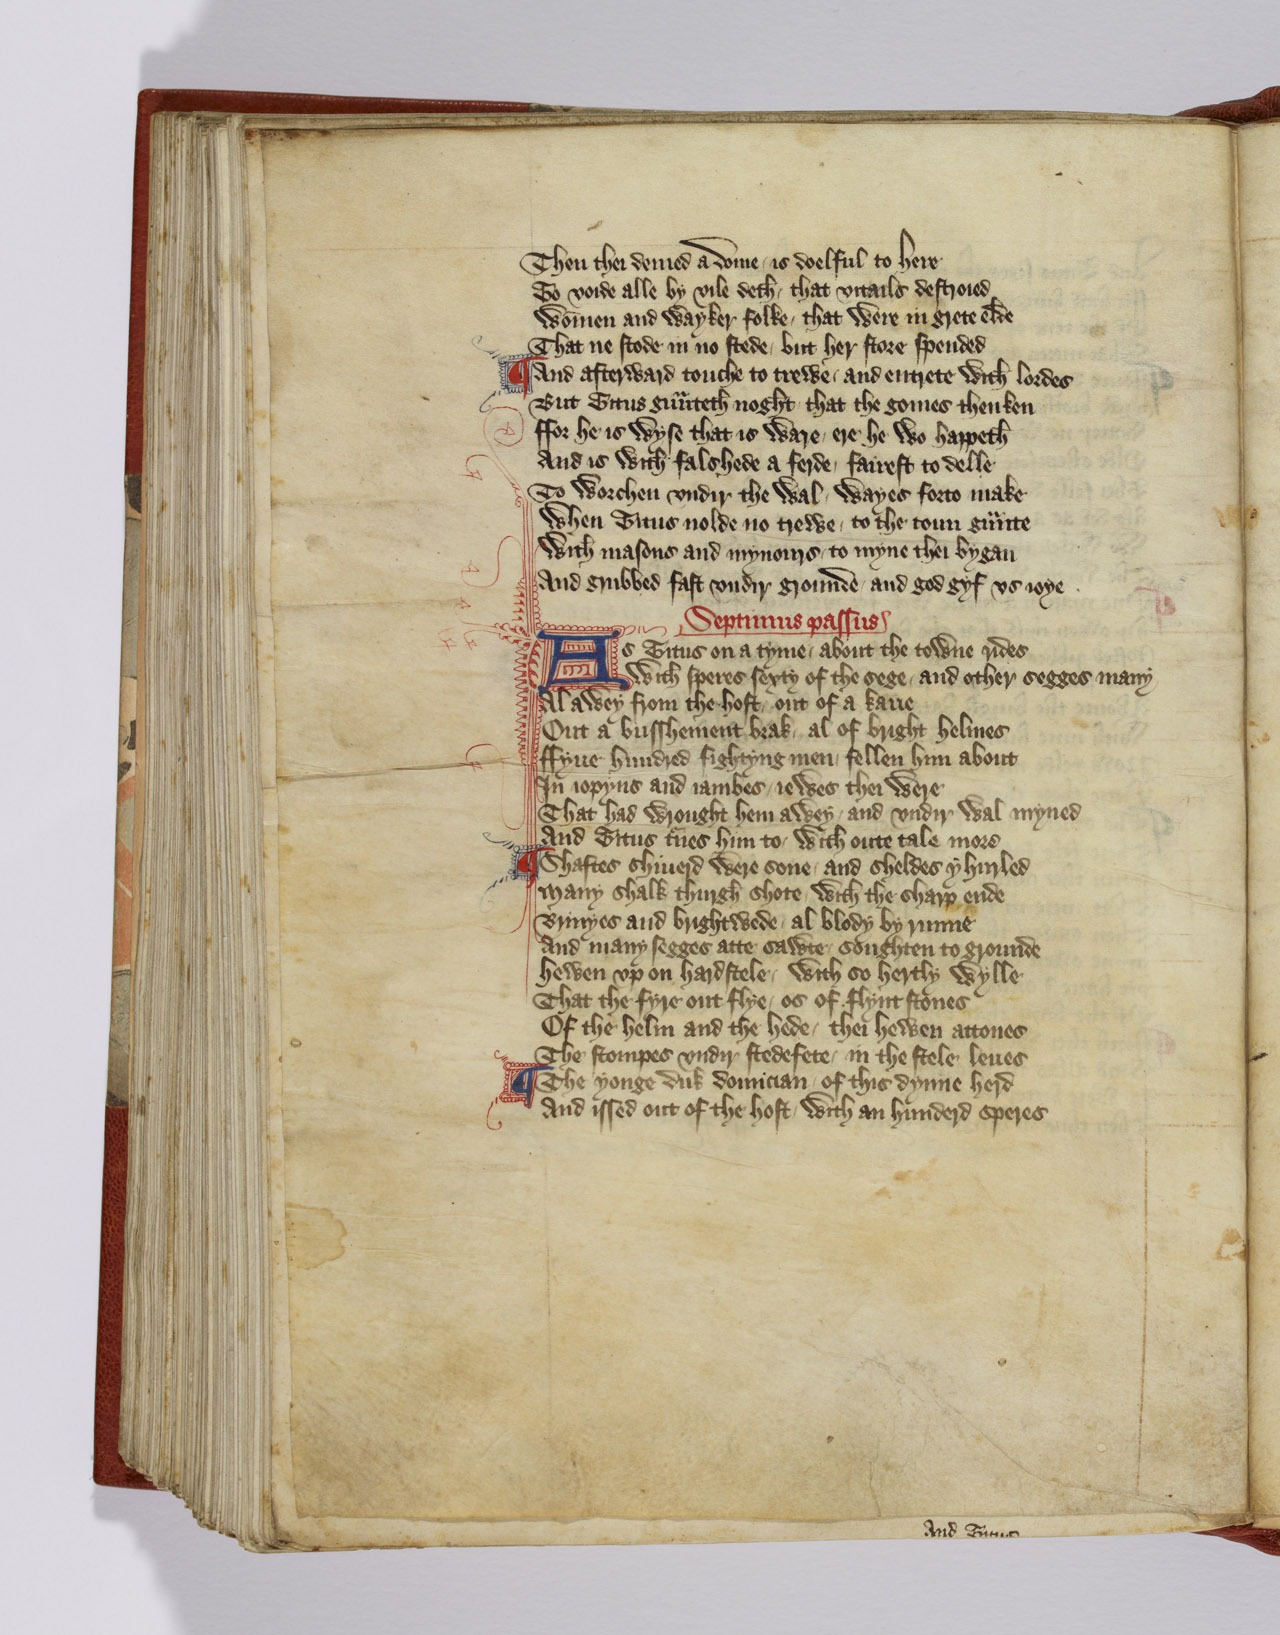 Then thei demed a dome / is doelful to here
To voide alle by vile deth / that vitails destroied
Women and wayker folke / that were in grete elde
That ne stode in no stede / but her store spended
And afterward touche to trewe / and entrete with lordes
But Titus graunteth noght / that the gomes thenken
ffor he is wyse that is ware / ere he wo happeth
And is with falshede a ferde / fairest to delle
To worchen vndir the wal / wayes forto make
When Titus nolde no trewe / to the toun graunte
With masons and mynours / to myne thei bygan
And grubbed fast vndir grounde / and god gyf vs ioye
Septimus passus
As Titus on a tyme / about the towne rides
With speres sexty of the sege / and other segges many
Al awey from the host / out of a kaue
Out a busshement brak / al of bright helmes
ffyue hundred fightyng men / fellen him about
In iopyns and iambes / iewes thei were
That had wrought hem awey / and vndir wal myned
And Titus turnes him to / with oute tale more
Shaftes shiuerd were sone / and sheldes yhurled
Many shalk thurgh shote / with the sharp ende
Brinyes and brightwede / al blody by runne
And many segges atte sawte / soughten to grounde
hewen vp on hardstele / with so hertly wylle
That the fyre out flye / os of flynt stones
Of the helm and the hede / thei hewen attones
The stompes vndir stedefete / in the stele leues
The yonge duk domician / of this dynne herd
And issed out of the host / with an hunderd speres
And Titus